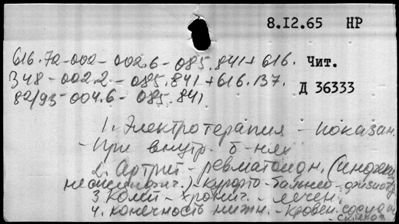 8.I2.65 НР
616.72-002-002.6-085.841+616. Чит.
348-002.2-085.841+616.137. Д 36333
82/93-004.6-085.841.
1. Электротерапия - показан.
- При внутр. б-нях
2. Артрит - ревматоидн. (инфекц.
неспецифич.) - курорто-бальнео-физиотер
3. Колит - хронич. - лечен.
4. Конечность нижн. - кровен.